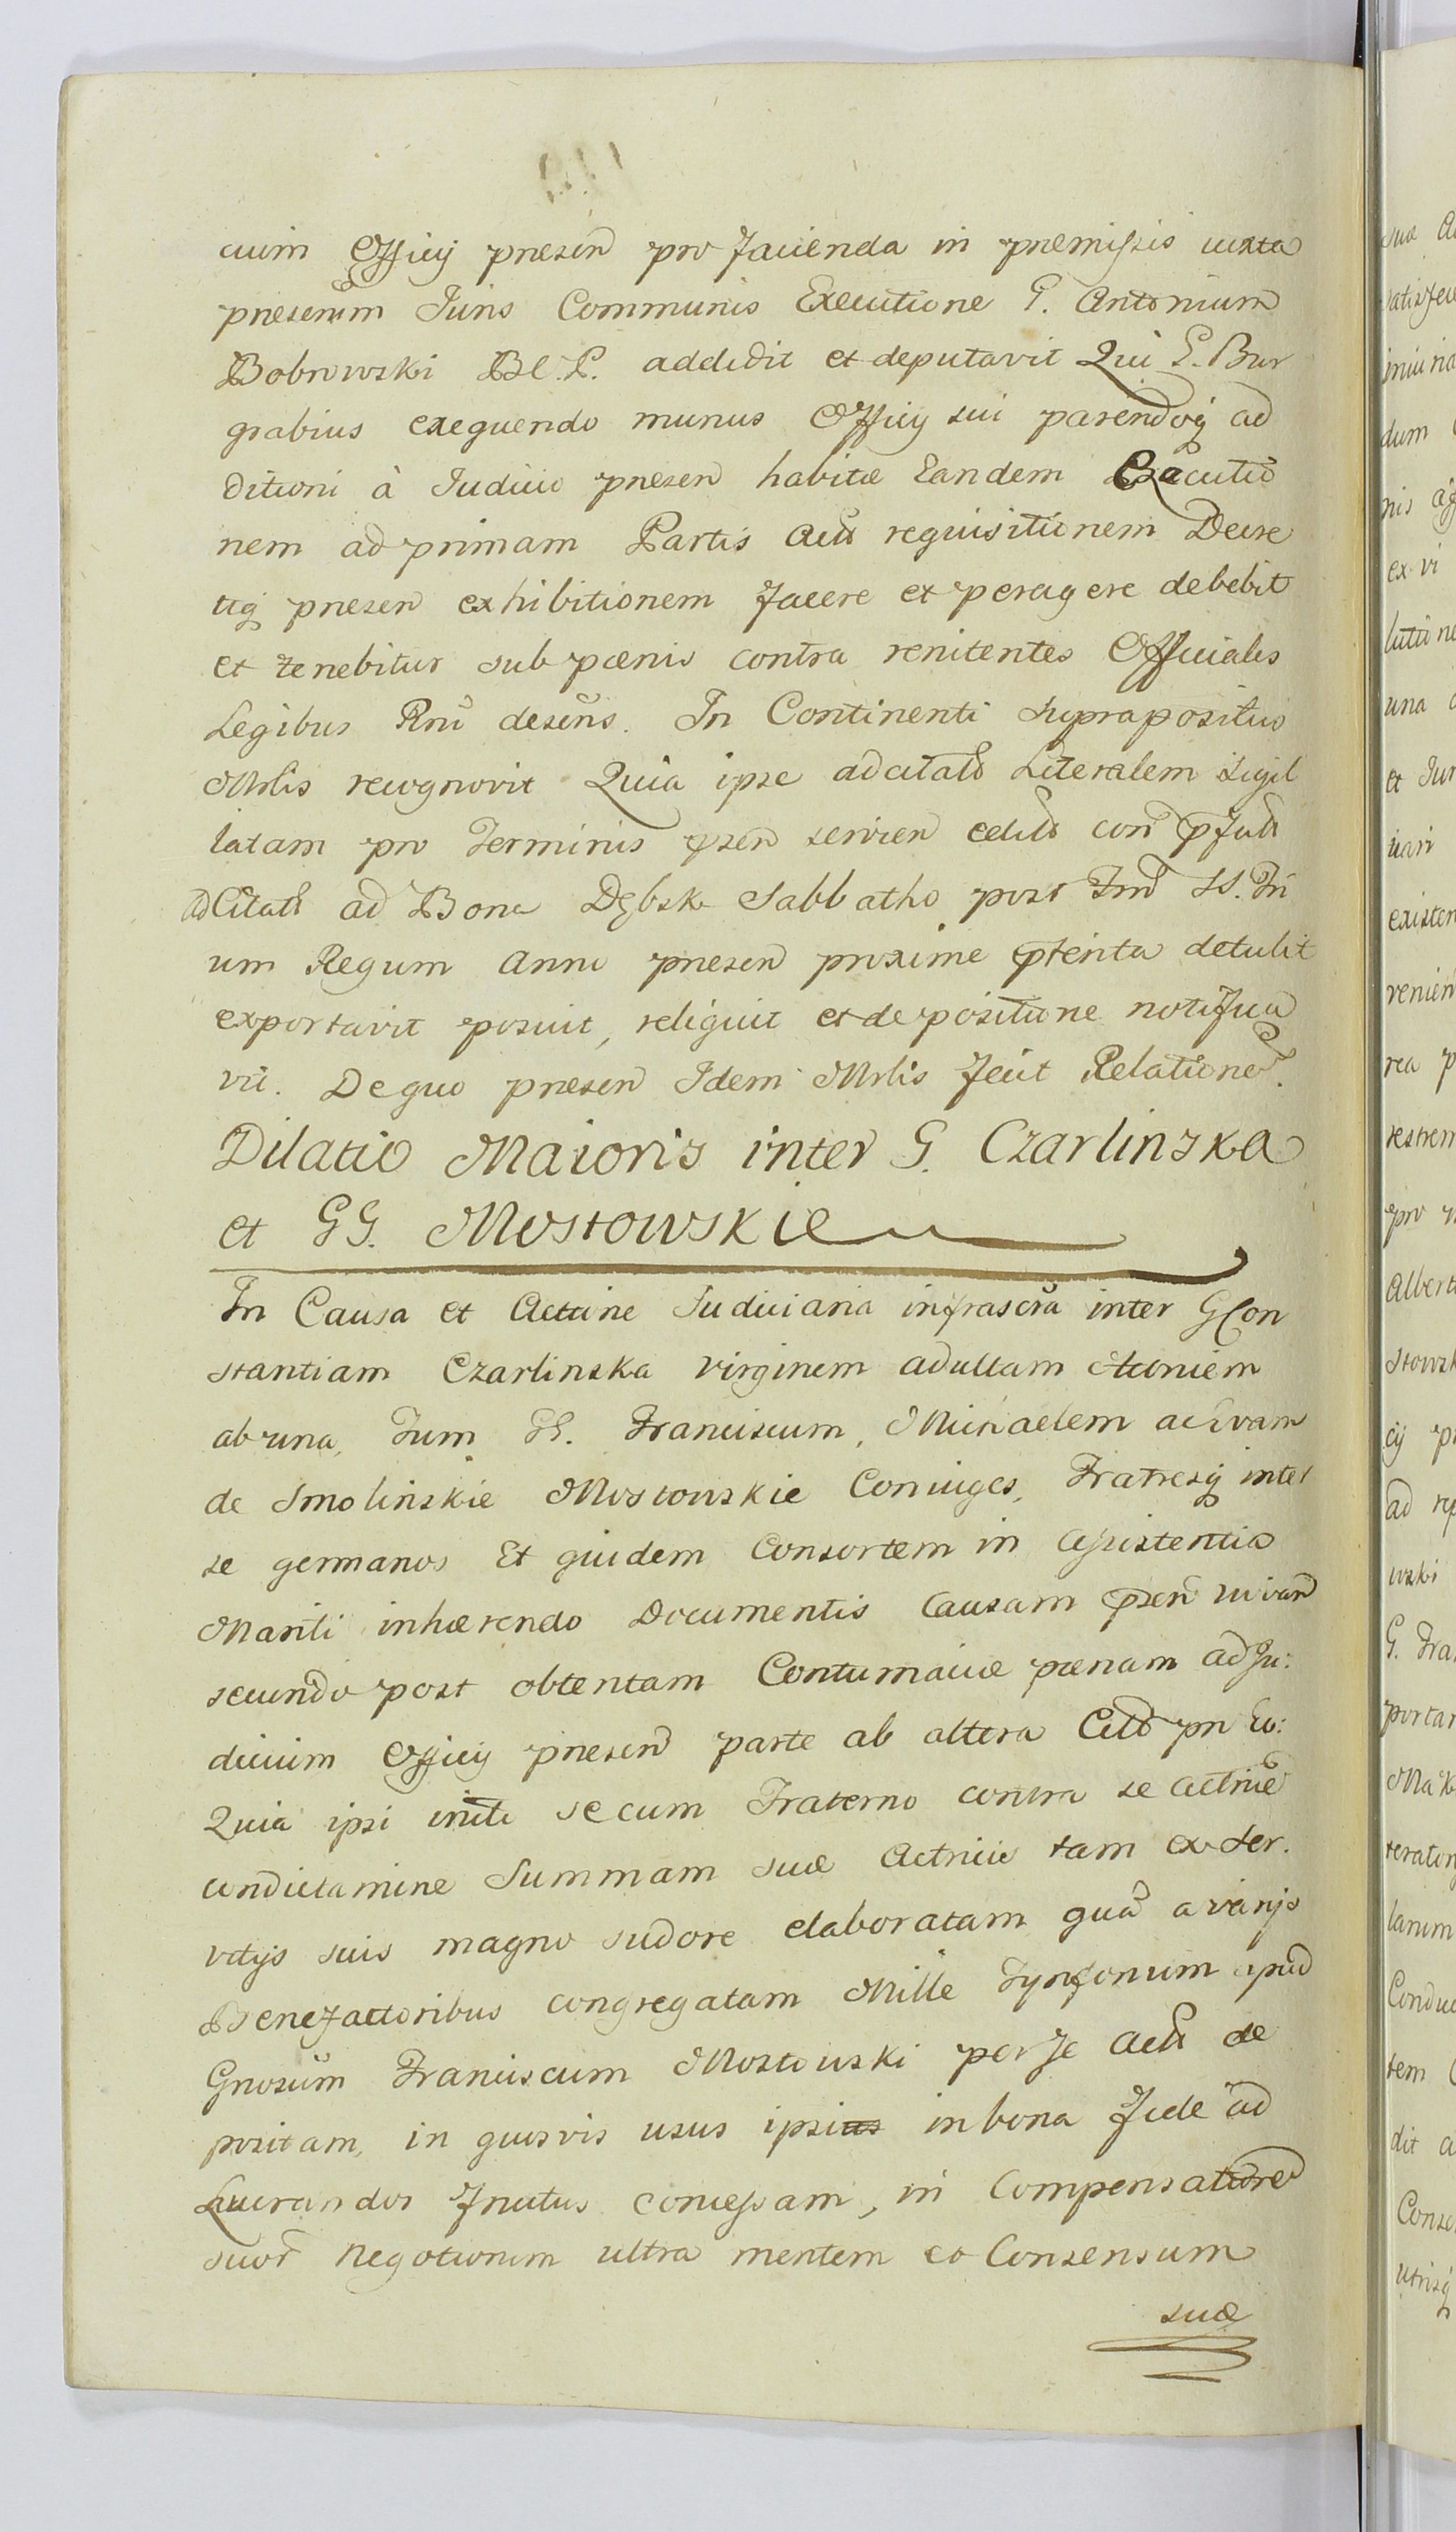 cium Officij presen pro facienda in premissis iuxta
presentem Juris Communis Executione G. Antonium
Bobrowski B.C.P. addidit et deputavit Qui G. Bur
grabius exequendo munus Officij sui parendoq ad
ditioni à Judicio presen habitæ Eandem Executio
nem ad primam Partis Acta requisitionem Decre
tiq presen exhibitionem facere et peragere debebit
et tenebitur sub pænis contra renitentes Officiales
Legibus Rni deseris. In Continenti Suprapositus
Mrlis recognovit Quia ipse adcitatt Literalem Sigil
latam pro Terminis psen servien edittt con pfatt
adCitatt ad Bona Dębsk Sabbatho post Fm SS. Tri
um Regum Anni presen proxime pterita detulit
exportavit posuit, reliquit et depositione notifica
vit. De quo presen Idem Mrlis fecit Relatione.
Dilatio Maioris inter G. Czarlinska
et GG. Mostowskie
In Causa et Actione Judiciaria infrascra inter G Con
stantiam Czarlinska virginem adultam Actoriem
ab una, Tum GG. Franciscum, Michaelem ac Evam
de Smolinskie Mostowskie Coniuges, Fratresq inter
se germanos Et quidem Consortem in Assistentia
Mariti inhærendo Documentis Causam psen iuvan
secundo post obtentam Contumaciæ pænam ad Ju:
dicium Officij presen parte ab altera Citt pn Eo:
Quia ipsi inito secum Fraterno contra se Actrice
condictamine Summam suæ Actricis tam ex Ser.
vitijs suis magno sudore elaboratam qua a varijs
Benefactoribus congregatam Mille Tynfonum apud
Gnosum Franciscum Mostowski per se Act de
positam, in quosvis usus ipsius in bona fide ad
Lucrandos fructus concessam, in Compensatione
suor negotiorum ultra mentem et Consensum
suæ